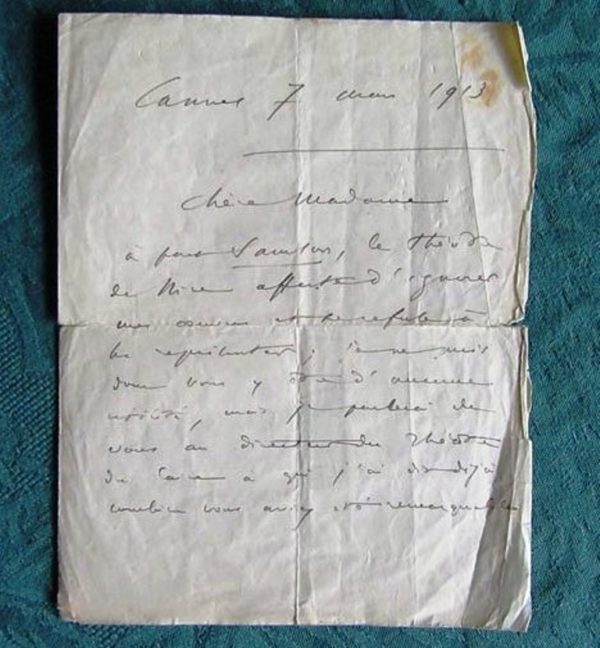 Cannes 7 mars 1913
Chère Madame
à part Samson, le Théâtre
de Nice affecte d'ignorer
mes œuvres et se refuse à
les représenter; je ne puis
donc vous y être d'aucune
utilité, mais je parlerai de
vous au directeur du Théâtre
du Caire à qui j'ai dit déjà
combien vous aviez été remarquable